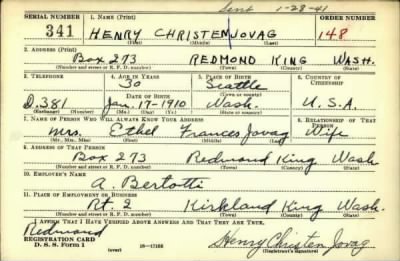 Sent 1-28-41
SERIAL NUMBER 1. NAME (Print) ORDER NUMBER
341 HENRY CHRISTEN JOVAG 148
(First) (Middle) (Last)
2. ADDRESS (Print)
Box 273 REDMOND KING WASH.
(Number and street or R. F. D. number) (Town) (County) (State)
3. TELEPHONE 4. AGE IN YEARS 5. PLACE OF BIRTH 6. COUNTRY OF CITIZENSHIP
30 Seattle
DATE OF BIRTH (Town or county)
D.381 Jan. 17-1910 Wash. U.S.A.
(Exchange) (Number) (Mo.) (Day) (Yr.) (State or country)
7. NAME OF PERSON WHO WILL ALWAYS KNOW YOUR ADDRESS 8. RELATIONSHIP OF THAT PERSON
Mrs. Ethel Frances Jovag Wife
(Mr., Mrs., Miss) (First) (Middle) (Last)
9. ADDRESS OF THAT PERSON
Box 273 Redmond King Wash
(Number and street or R. F. D. number) (Town) (County) (State)
10. EMPLOYER'S NAME
A. Bertotti
11. PLACE OF EMPLOYMENT OR BUSINESS
Rt. 2 Kirkland King Wash.
(Number and street or R. F. D. number) (Town) (County) (State)
I AFFIRM THAT I HAVE VERIFIED ABOVE ANSWERS AND THAT THEY ARE TRUE.
Redmond
REGISTRATION CARD
D. S. S. Form 1 (over) 16-17105 Henry Christen Jovag
(Registrant's signature)